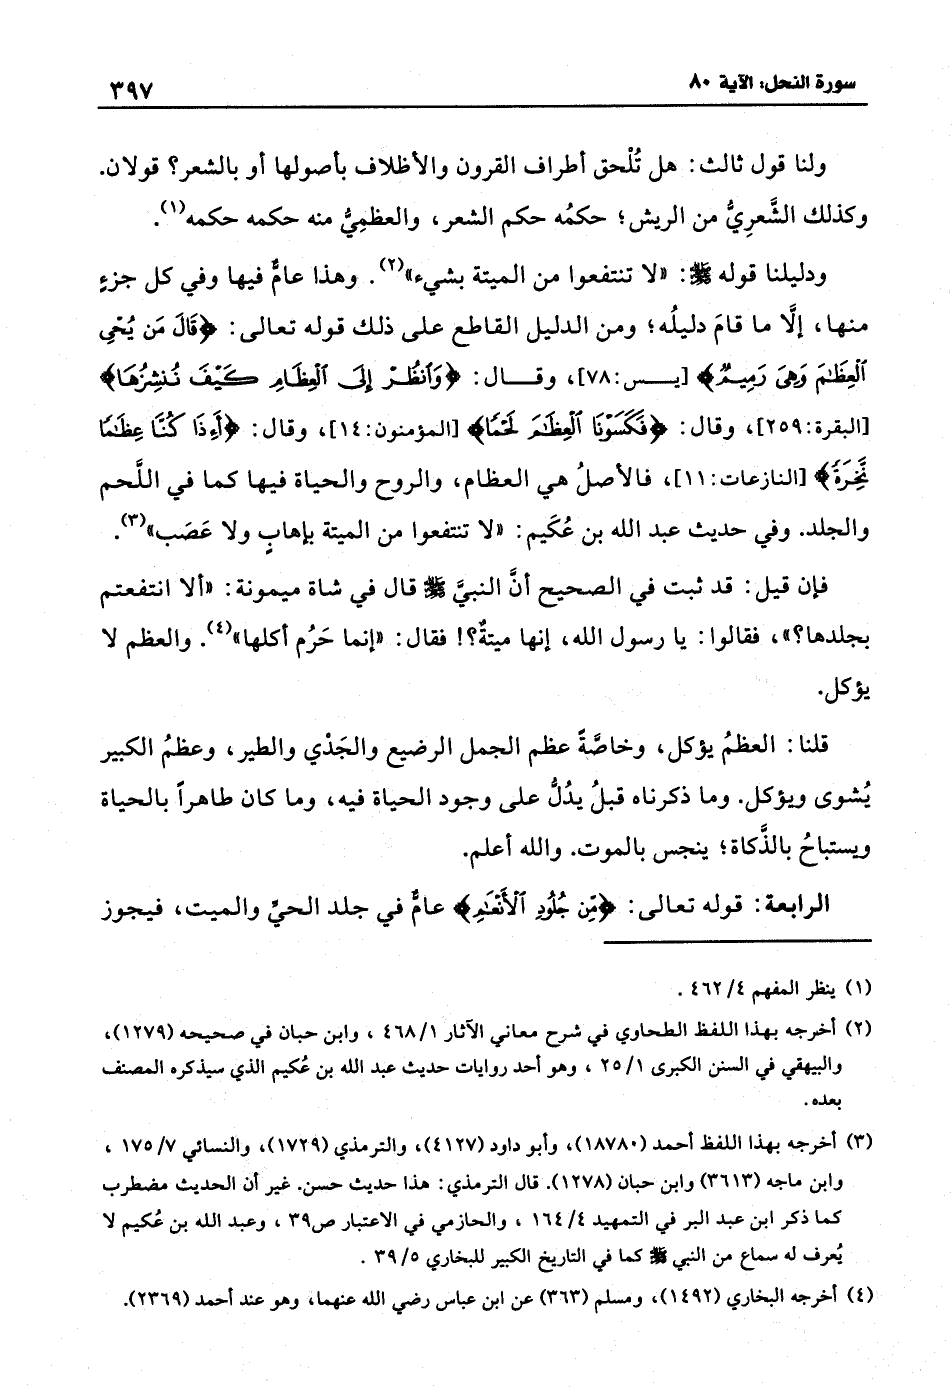 سورة النحل: الآية ٨٠
٣٩٧
ولنا قول ثالث: هل تُلْحق أطراف القرون والأظلاف بأصولها أو بالشعر؟ قولان.
وكذلك الشَّعرِيُّ من الريش؛ حكمُه حكم الشعر، والعظمِيُّ منه حكمه حكمه(١).
ودليلنا قوله ﷺ: «لا تنتفعوا من الميتة بشيء»(٢). وهذا عامٌّ فيها وفي كل جزءٍ
منها، إلَّا ما قامَ دليلُه؛ ومن الدليل القاطع على ذلك قوله تعالى: ﴿قَالَ مَن يُحْىِ
ٱلْعِظَٰمَ وَهِىَ رَمِيمٌ﴾ [يــس:٧٨]، وقــال: ﴿وَٱنظُرْ إِلَى ٱلْعِظَامِ كَيْفَ نُنشِزُهَا﴾
[البقرة:٢٥٩]، وقال: ﴿فَكَسَوْنَا ٱلْعِظَٰمَ لَحْمًا﴾ [المؤمنون:١٤]، وقال: ﴿أَءِذَا كُنَّا عِظَٰمًا
نَّخِرَةً﴾ [النازعات:١١]، فالأصلُ هي العظام، والروح والحياة فيها كما في اللَّحم
والجلد. وفي حديث عبد الله بن عُكَيم: «لا تنتفعوا من الميتة بإهابٍ ولا عَصَب»(٣).
فإن قيل: قد ثبت في الصحيح أنَّ النبيَّ ﷺ قال في شاة ميمونة: «ألا انتفعتم
بجلدها؟»، فقالوا: يا رسول الله، إنها ميتةٌ؟! فقال: «إنما حَرُم أكلها»(٤). والعظم لا
يؤكل.
قلنا: العظمُ يؤكل، وخاصَّةً عظم الجمل الرضيع والجَدْي والطير، وعظمُ الكبير
يُشوى ويؤكل. وما ذكرناه قبلُ يدُلُّ على وجود الحياة فيه، وما كان طاهراً بالحياة
ويستباحُ بالذَّكاة؛ ينجس بالموت. والله أعلم.
الرابعة: قوله تعالى: ﴿مِّن جُلُودِ ٱلْأَنْعَٰمِ﴾ عامٌّ في جلد الحيِّ والميت، فيجوز
(١) ينظر المفهم ٤/ ٤٦٢ .
(٢) أخرجه بهذا اللفظ الطحاوي في شرح معاني الآثار ١/ ٤٦٨ ، وابن حبان في صحيحه (١٢٧٩)،
والبيهقي في السنن الكبرى ١/ ٢٥ ، وهو أحد روايات حديث عبد الله بن عُكيم الذي سيذكره المصنف
بعده.
(٣) أخرجه بهذا اللفظ أحمد (١٨٧٨٠)، وأبو داود (٤١٢٧)، والترمذي (١٧٢٩)، والنسائي ٧/ ١٧٥ ،
وابن ماجه (٣٦١٣) وابن حبان (١٢٧٨). قال الترمذي: هذا حديث حسن. غير أن الحديث مضطرب
كما ذكر ابن عبد البر في التمهيد ٤/ ١٦٤ ، والحازمي في الاعتبار ص٣٩ ، وعبد الله بن عُكيم لا
يُعرف له سماع من النبي ﷺ كما في التاريخ الكبير للبخاري ٥/ ٣٩ .
(٤) أخرجه البخاري (١٤٩٢)، ومسلم (٣٦٣) عن ابن عباس رضي الله عنهما، وهو عند أحمد (٢٣٦٩).